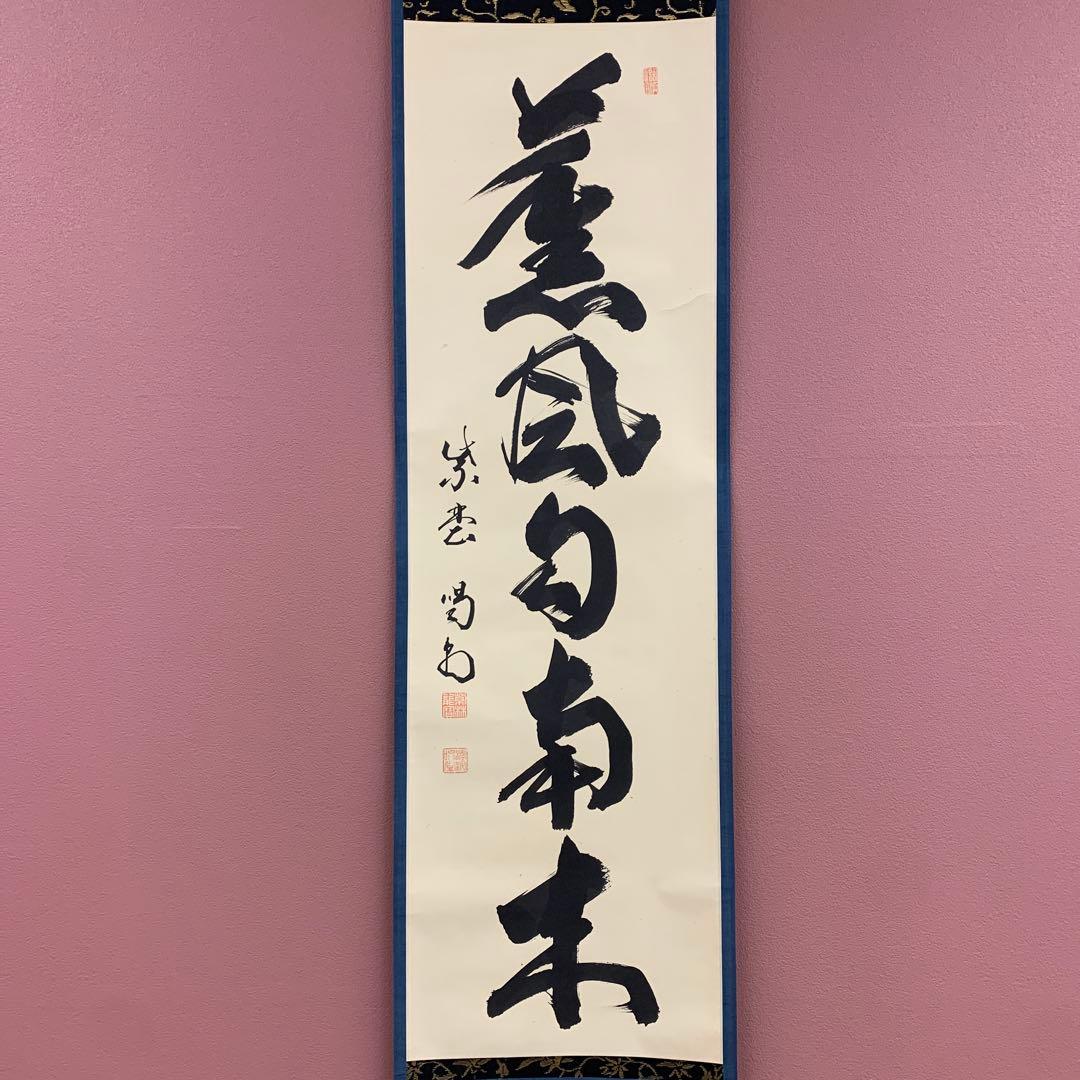 薫風自南来
紫雲